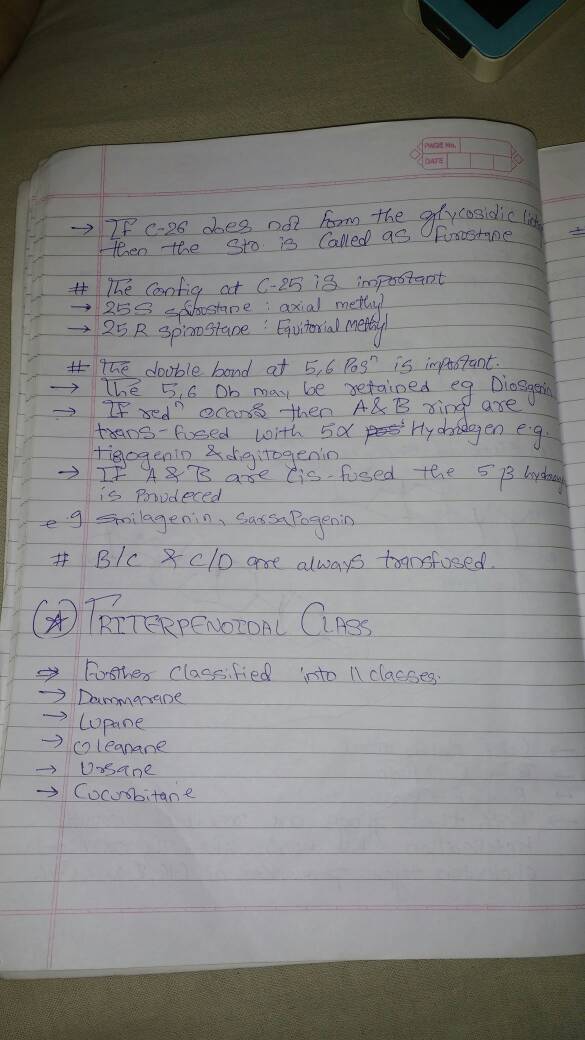 PAGE No.
DATE
→ If C-26 does not form the glycosidic
then the Str. is called as Furostane
# The Config at C-25 is important
→ 25S spirostane : axial methyl
→ 25R spirostane : Equitorial Methyl
# The double bond at 5,6 Posⁿ is important.
→ The 5,6 Db may be retained eg Diosgenin
→ If redⁿ occurs then A & B ring are
trans-fused with 5α Hydrogen e.g.
tigogenin & digitogenin
→ If A & B are Cis-fused the 5β
is Porudeced
e.g smilagenin, sarsapogenin
# B/C & C/D are always transfused.
(☆) TRITERPENOIDAL CLASS
⇒ Further Classified into 11 classes.
→ Dammarane
→ Lupane
→ Oleanane
→ Ursane
→ Cucurbitane